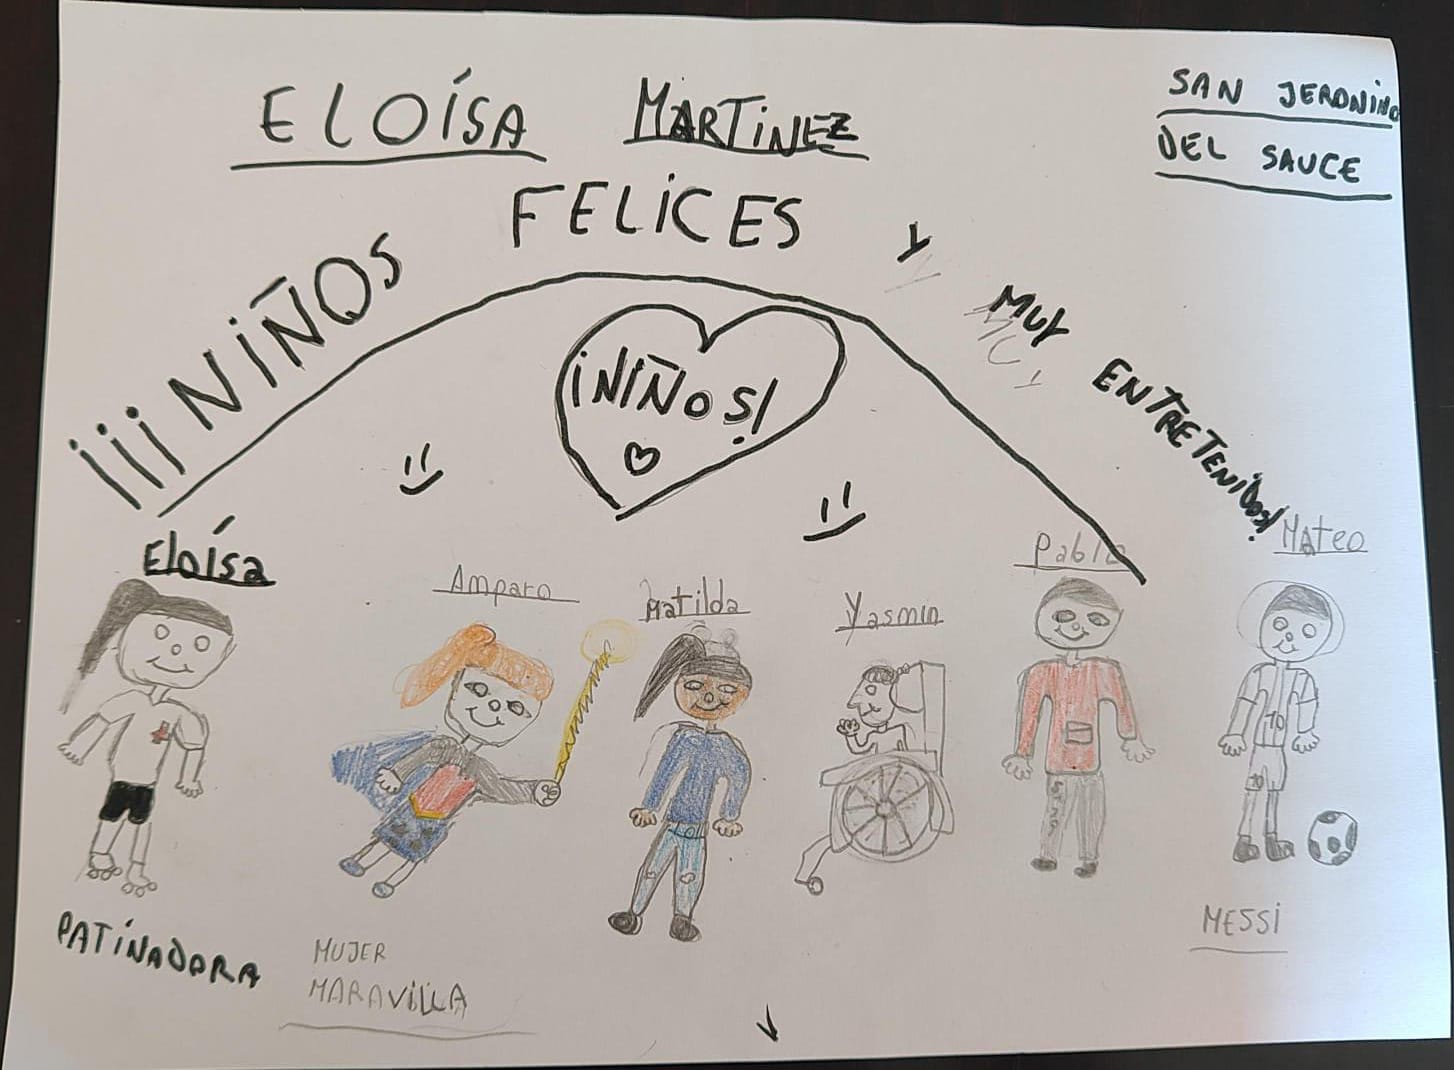 ELOÍSA MARTINEZ
SAN JERONIMO
DEL SAUCE
¡¡¡NIÑOS FELICES Y MUY ENTRETENIDOS!
¡NIÑOS!
Eloísa
Amparo
Matilda
Yasmin
Pablo
Mateo
10
10
PATINADORA
MUJER
MARAVILLA
MESSI